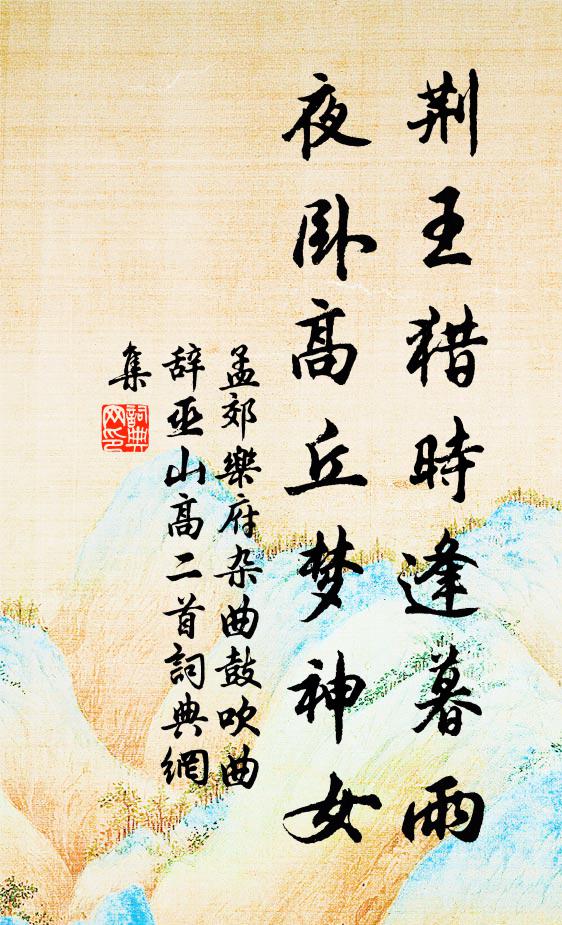 荆王猎時逢暮雨
夜卧高丘梦神女
孟郊樂府杂曲鼓吹曲
辞巫山高二首詞典網
集
詞典网印